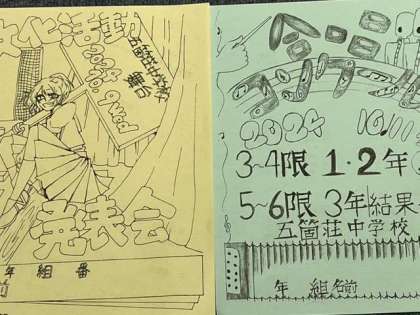 文化活動
2024
10.9 Wed
五箇荘中学校
発表会
年 組 番
前
合唱
コンクール
2024 10.11
3~4限 1・2年
5~6限 3年 結果
五箇荘中学校
年 組 名前